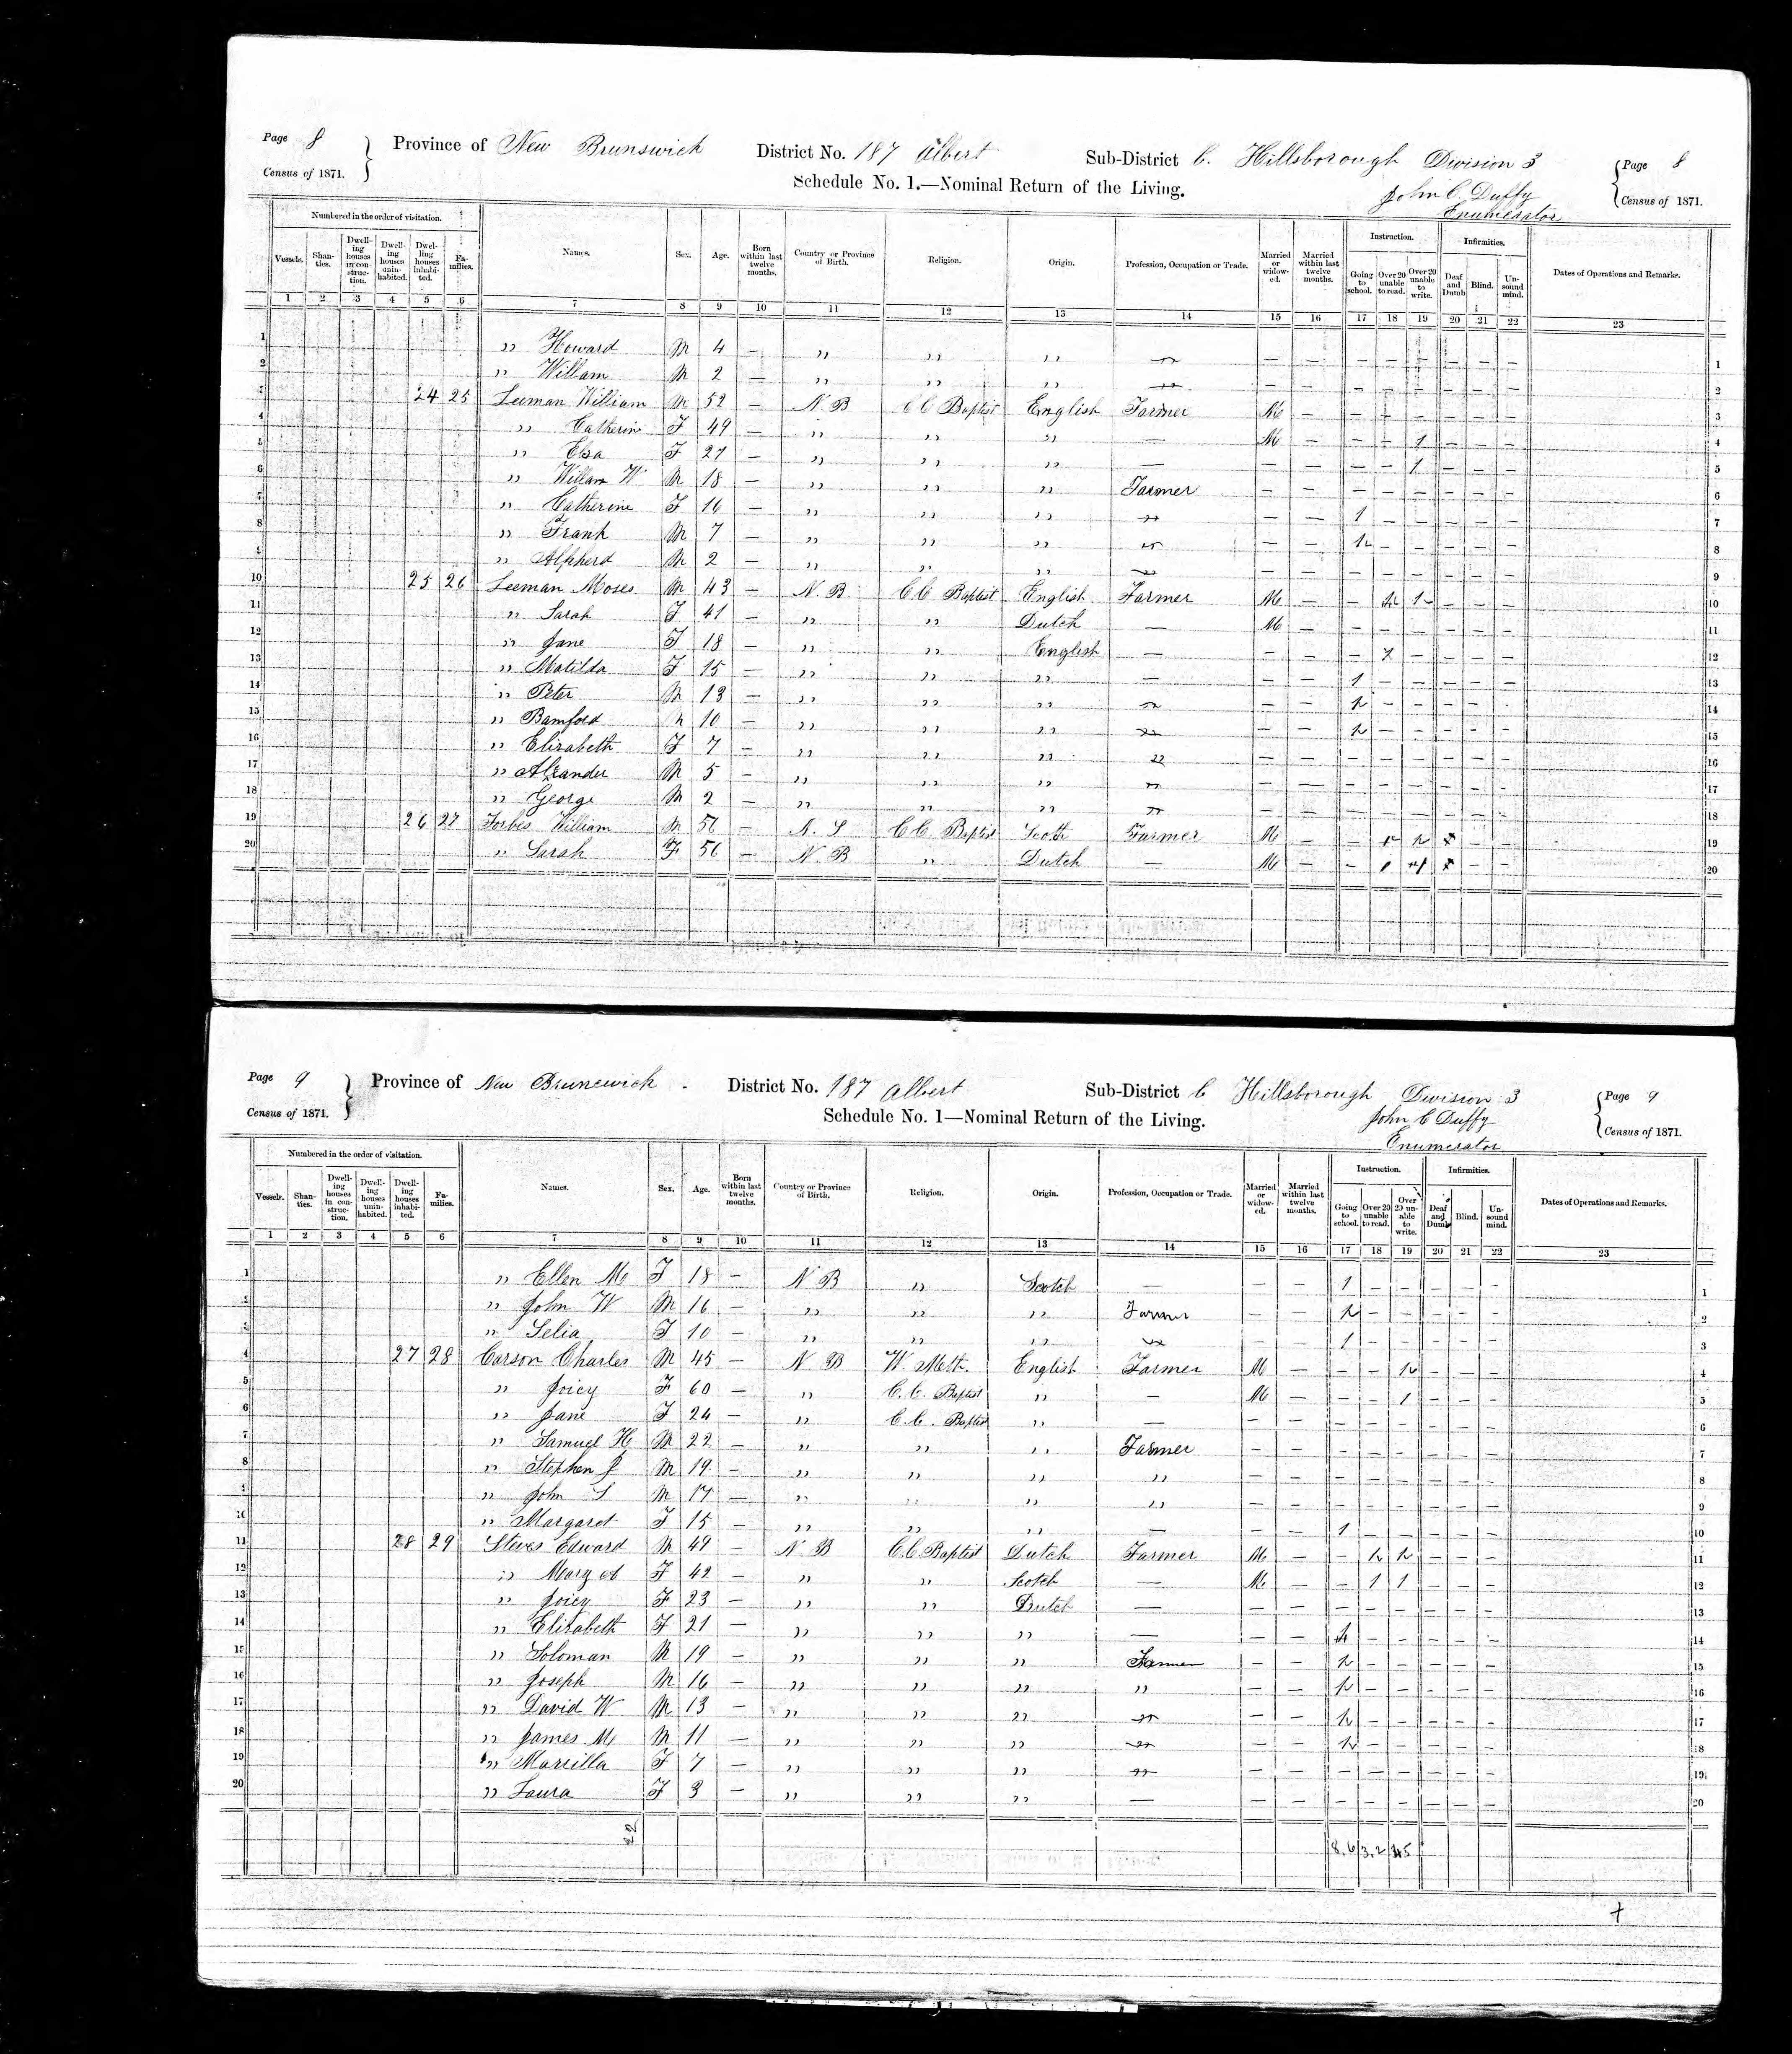 Page 8 Province of New Brunswick District No. 187 Albert Sub-District C. Hillsborough Division 3 Page 8
Census of 1871. Schedule No. 1.—Nominal Return of the Living. John C Duffy Census of 1871.
Enumerator
Numbered in the order of visitation. Instruction. Infirmities.
Vessels. Shanties. Dwelling houses in construction. Dwelling houses uninhabited. Dwelling houses inhabited. Families. Names. Sex. Age. Born within last twelve months. Country or Province of Birth. Religion. Origin. Profession, Occupation or Trade. Married or widowed. Married within last twelve months. Going to school. Over 20 unable to read. Over 20 unable to write. Deaf and Dumb Blind. Unsound mind. Dates of Operations and Remarks.
1 2 3 4 5 6 7 8 9 10 11 12 13 14 15 16 17 18 19 20 21 22 23
1 " Howard M 4 — " " " " — — — — — — — — 1
2 " Willam M 2 — " " " " — — — — — — — — 2
3 24 25 Leeman William M 52 — N. B C C Baptist English Farmer M — — — — — — — 3
4 " Catherin F 49 — " " " — M — — — 1 — — — 4
5 " Elsa F 27 — " " " — — — — — 1 — — — 5
6 " Willam W M 18 — " " " Farmer — — — — — — — — 6
7 " Catherine F 16 — " " " " — — 1 — — — — — 7
8 " Frank M 7 — " " " " — — 1 — — — — — 8
9 " Alpherd M 2 — " " " " — — — — — — — — 9
10 25 26 Leeman Moses M 43 — N. B C C Baptist English Farmer M — — 1 1 — — — 10
11 " Sarah F 41 — " " Dutch — M — — — — — — — 11
12 " Jane F 18 — " " English — — — — 1 — — — — 12
13 " Matilda F 15 — " " " — — — 1 — — — — — 13
14 " Peter M 13 — " " " " — — 1 — — — — 14
15 " Bamford M 10 — " " " " — — 1 — — — — — 15
16 " Elizabeth F 7 — " " " " — — — — — — — — 16
17 " Alxander M 5 — " " " " — — — — — — — — 17
18 " George M 2 — " " " " — — — — — — — — 18
19 26 27 Forbes William M 56 — N. S C C. Baptist Scotth Farmer M — — 1 1 — — 19
20 " Sarah F 56 — N. B " Dutch — M — — 1 1 — — 20
Page 9 Province of New Brunswick District No. 187 Albert Sub-District C Hillsborough Division 3 Page 9
Census of 1871. Schedule No. 1—Nominal Return of the Living. John C Duffy Census of 1871.
Enumerator
Numbered in the order of visitation. Instruction. Infirmities.
Vessels. Shanties. Dwelling houses in construction. Dwelling houses uninhabited. Dwelling houses inhabited. Families. Names. Sex. Age. Born within last twelve months. Country or Province of Birth. Religion. Origin. Profession, Occupation or Trade. Married or widowed. Married within last twelve months. Going to school. Over 20 unable to read. Over 20 unable to write. Deaf and Dumb Blind. Unsound mind. Dates of Operations and Remarks.
1 2 3 4 5 6 7 8 9 10 11 12 13 14 15 16 17 18 19 20 21 22 23
1 " Ellen M F 18 — N B " Scotch — — — 1 — — — — — 1
2 " John W M 16 — " " " Farmer — — 1 — — — — — 2
3 " Selia F 10 — " " " " — — 1 — — — — — 3
4 27 28 Carson Charles M 45 — N B W. Meth. English Farmer M — — — 1 — — — 4
5 " Joicy F 60 — " C. C. Baptist " — M — — — 1 — — — 5
6 " Jane F 24 — " C. C. Baptist " — — — — — — — — — 6
7 " Samuel H M 22 — " " " Farmer — — — — — — — — 7
8 " Stephen J M 19 — " " " " — — — — — — — — 8
9 " John S M 17 — " " " " — — — — — — — — 9
10 " Margaret F 15 — " " " — — — 1 — — — — — 10
11 28 29 Steves Edward M 49 — N B C C Baptist Dutch Farmer M — — 1 1 — — — 11
12 " Mary F 42 — " " Scotch — M — — 1 1 — — — 12
13 " Joicy F 23 — " " Dutch — — — — — — — — — 13
14 " Elizabeth F 21 — " " " — — — 1 — — — — — 14
15 " Soloman M 19 — " " " Farmer — — 1 — — — — — 15
16 " Joseph M 16 — " " " " — — 1 — — — — — 16
17 " David W M 13 — " " " " — — 1 — — — — — 17
18 " James M M 11 — " " " " — — 1 — — — — — 18
19 " Marcilla F 7 — " " " " — — — — — — — — 19
20 " Laura F 3 — " " " — — — — — — — — — 20
22 8.6 3.2